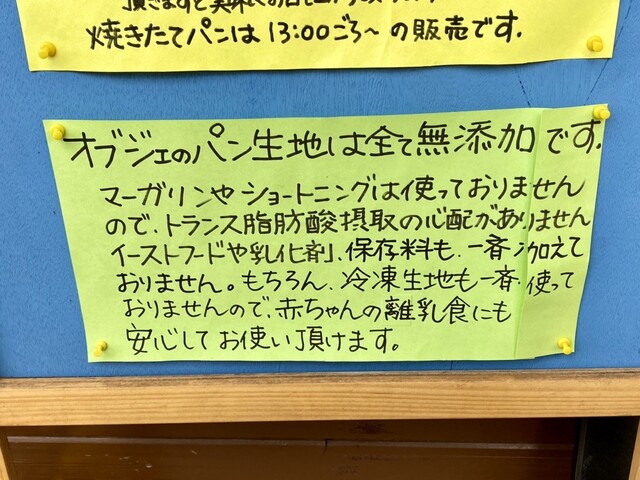 頂きますと美味しくお召し上がり頂けます。
焼きたてパンは13:00ごろ〜の販売です.
オブジェのパン生地は全て無添加です.
マーガリンやショートニングは使っておりません
ので、トランス脂肪酸摂取の心配がありません
イーストフードや乳化剤、保存料も、一斉加えて
おりません。もちろん、冷凍生地も一斉使って
おりませんので、赤ちゃんの離乳食にも
安心してお使い頂けます。